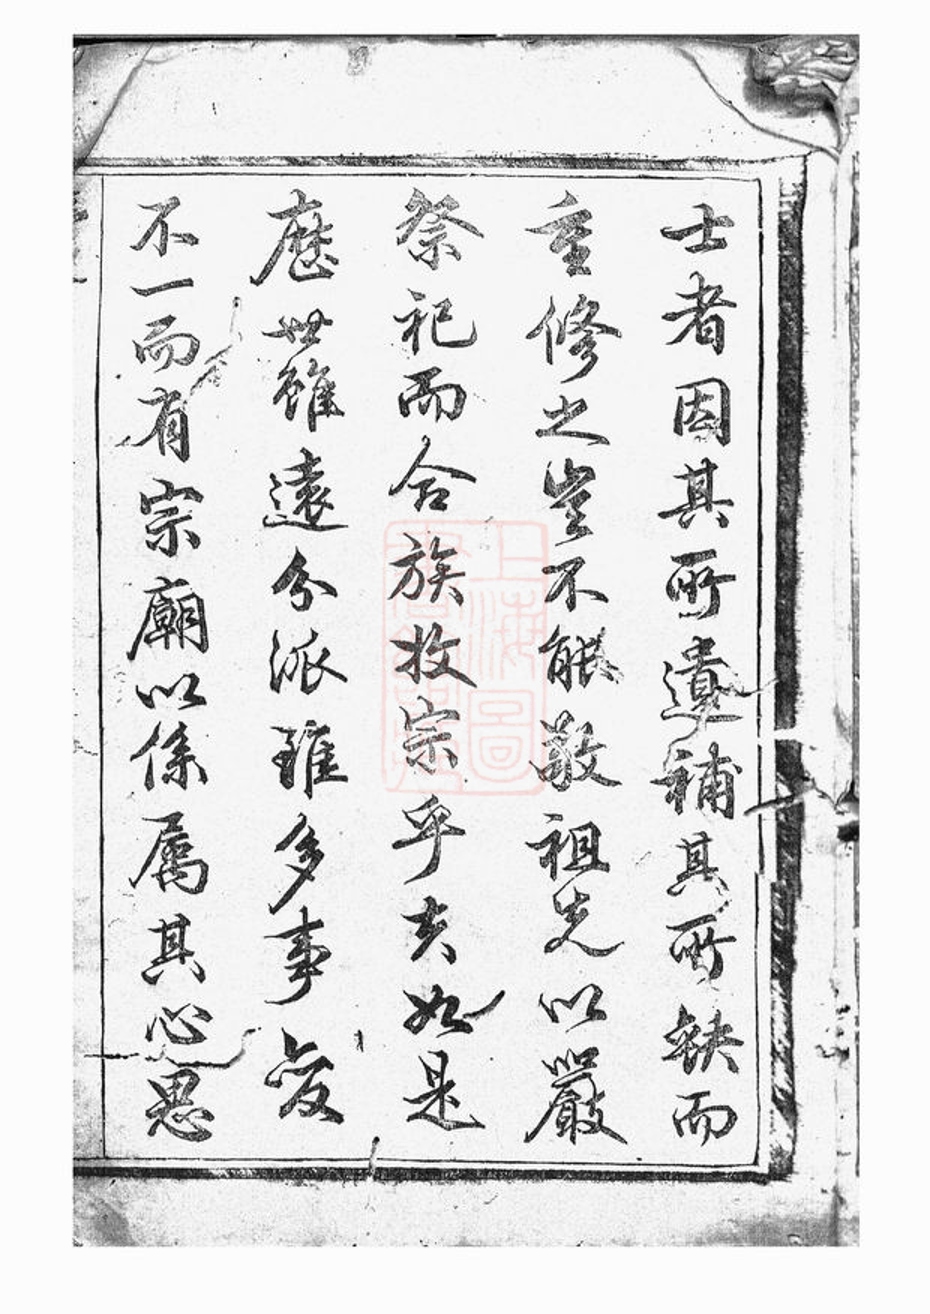 士者因其所遺補其所缺而
重修之豈不能敬祖先以嚴
祭祀而合族收宗乎夫如是
歷世雖遠分派雖多事變
不一而有宗廟以係属其心思
上海圖